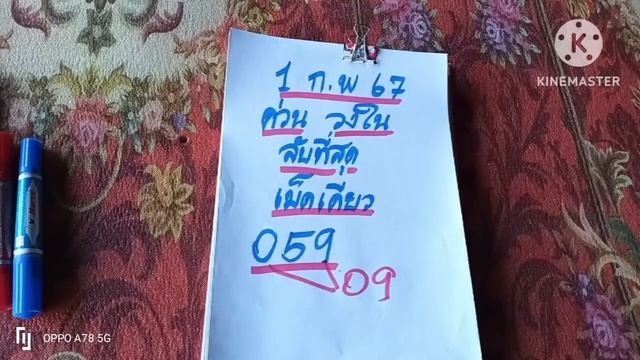 KINEMASTER
1 ก.พ 67
ด่วน วงใน
ลับที่สุด
เม็ดเดียว
059
09
OPPO A78 5G